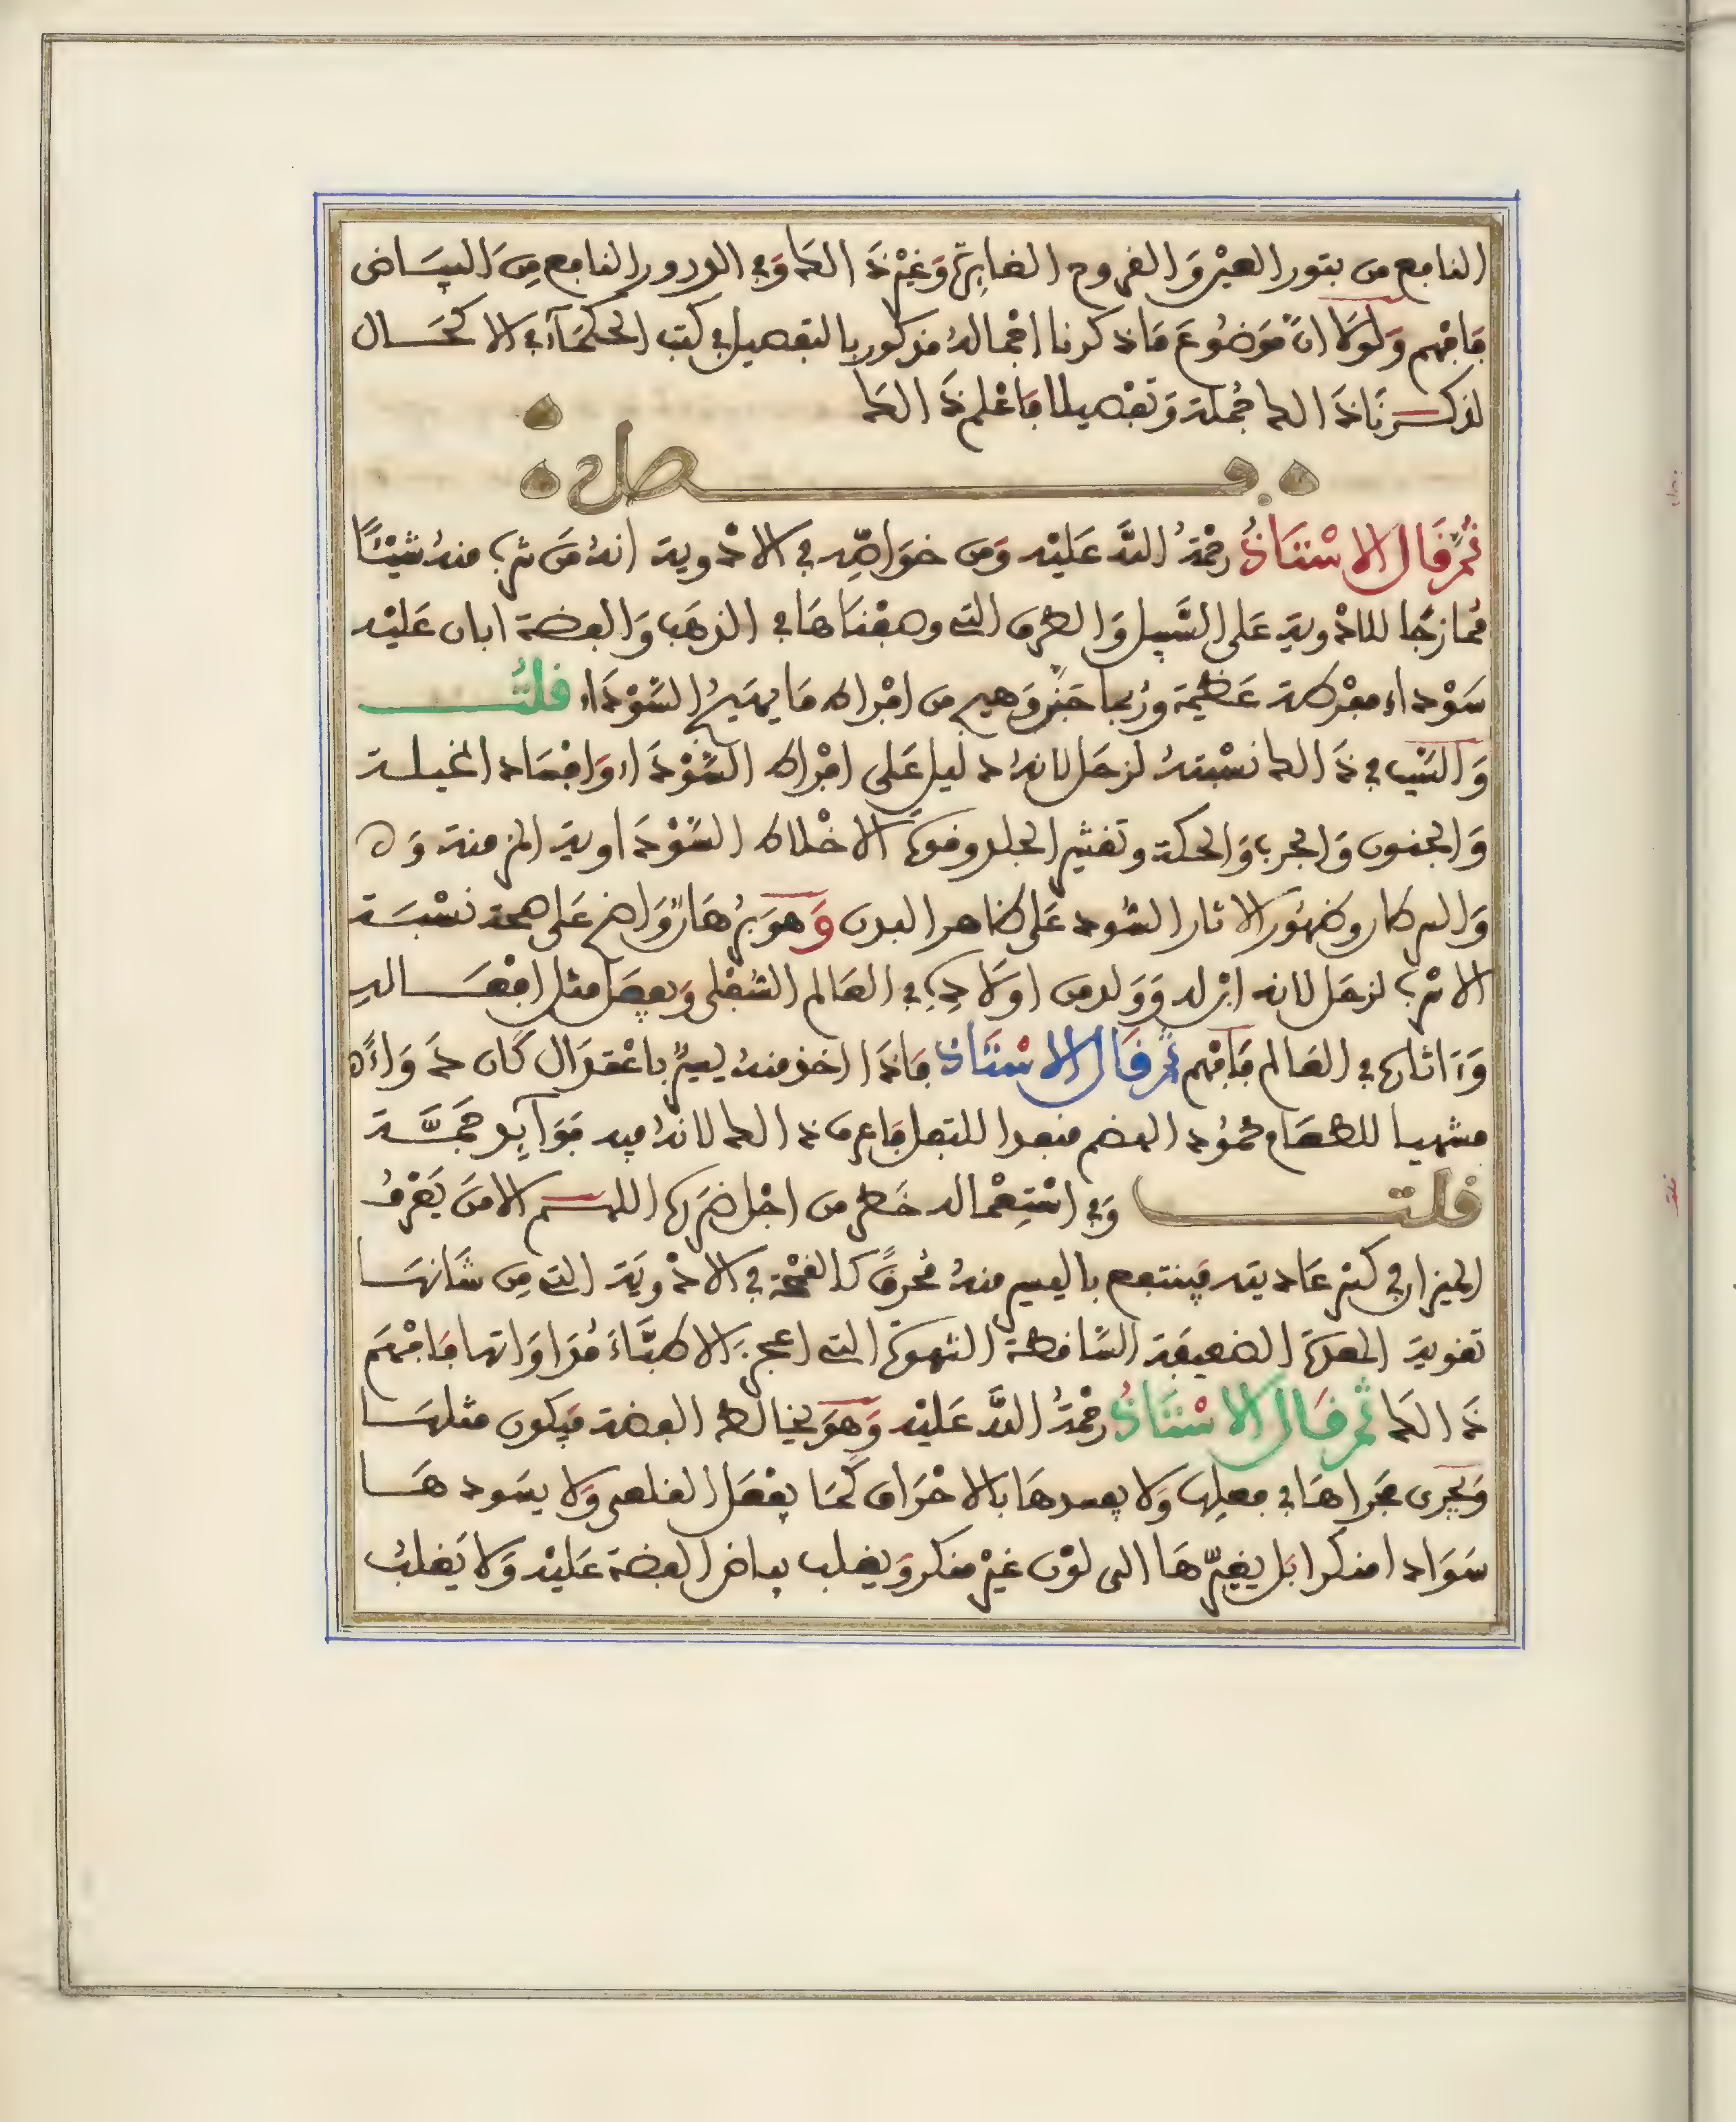 النافع من بثور العين والقروح الغايرة وغير ذالك وفي الدرور النافع من البياض
فافهم ولولا ان موضوع ما ذكرنا اجماله مذكور بالتفصيل في كتب الحكماء في الاكحال
لذكرنا ذالك جملة وتفصيلا فاعلم ذالك
فصل
ثم قال الاستاذ رحمة الله عليه ومن خواصه في الادوية انه من شرب منه شيئا
ممازجا للادوية على السبيل والطرق التي وصفناها في الذهب والفضة ابان عليه
سوداء مفرطة عظيمة وربما جنن وهيج من امراض ما يهيج السوداء قلت
والسبب في ذالك نسبته لزحل لانه دليل على امراض السوداء وافساد المخيلة
والجنون والجرب والحكة وتقشير الجلد وقوة الاخلاط السوداوية المزمنة و
والسرطان وظهور الاثار السود على ظاهر البدن وهو برهان واضح على صحة نسبة
الاسرب لزحل لانه ابن له وولد من اولاده في العالم السفلي ويفعل مثل افعاله
وءاثاره في العالم فافهم ثم قال الاستاذ فاذا اخذ منه يسير باعتدال كان دواء
مشهيا للطعام محمود الهضم منفدا للثفل فاعرف ذالك لانه فيه فوائد جمة
قلت وفي استعماله خطر من اجل ضررها اللهم الا من يعرف
الميزان في كثر عاديته فينتفع باليسير منه محرفا كالقمحة في الادوية التي من شانها
تقوية المعدة الضعيفة الساقطة الشهوة التي اعجزت الاطباء مداواتها فافهم
ذالك ثم قال الاستاذ رحمة الله عليه وهو يخالط الفضة فيكون مثلها
ويجري مجراها في فعلها ولا يفسدها بالاحراق كما يفعل القلعي ولا يسودها
سوادا منكرا بل يغيرها الى لون غير منكر ويغلب بياض الفضة عليه ولا يغلب